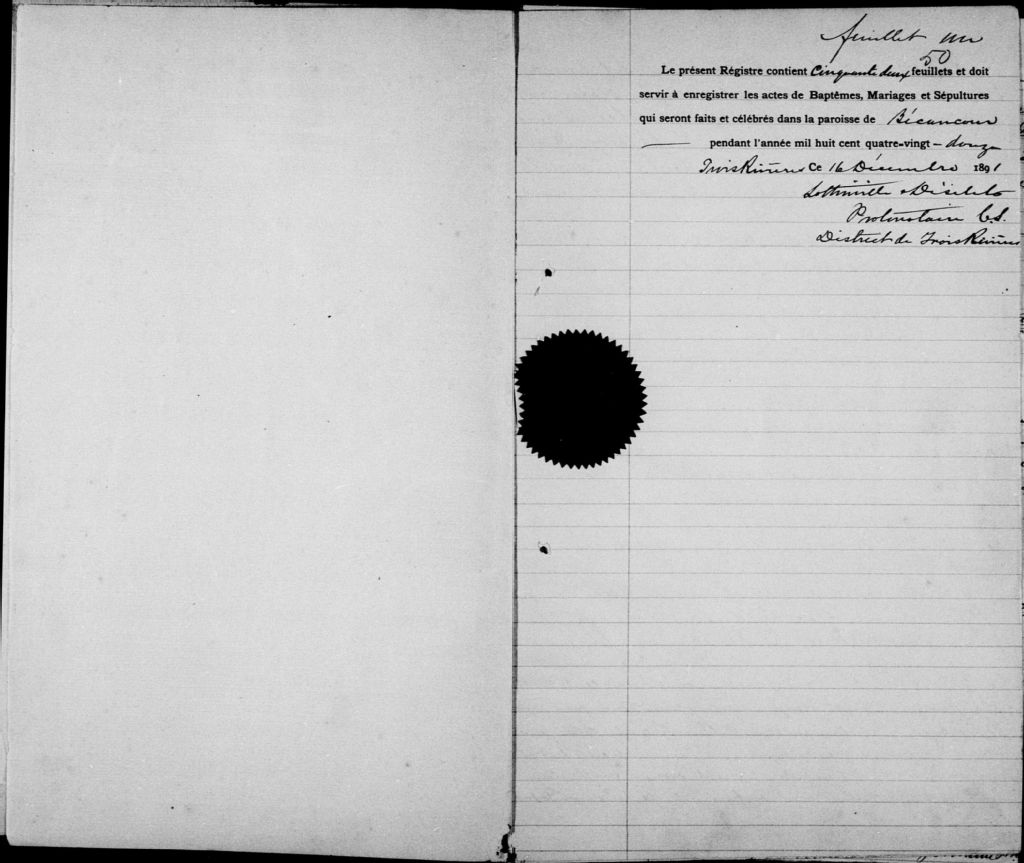 feuillet un
50
Le présent Régistre contient Cinquante deux feuillets et doit
servir à enregistrer les actes de Baptêmes, Mariages et Sépultures
qui seront faits et célébrés dans la paroisse de Bécancour
pendant l'année mil huit cent quatre-vingt - douze
Trois Rivières Ce 16 Décembre 1891
Lottinville & Désilets
Protonotaire C.S.
District de Trois Rivières